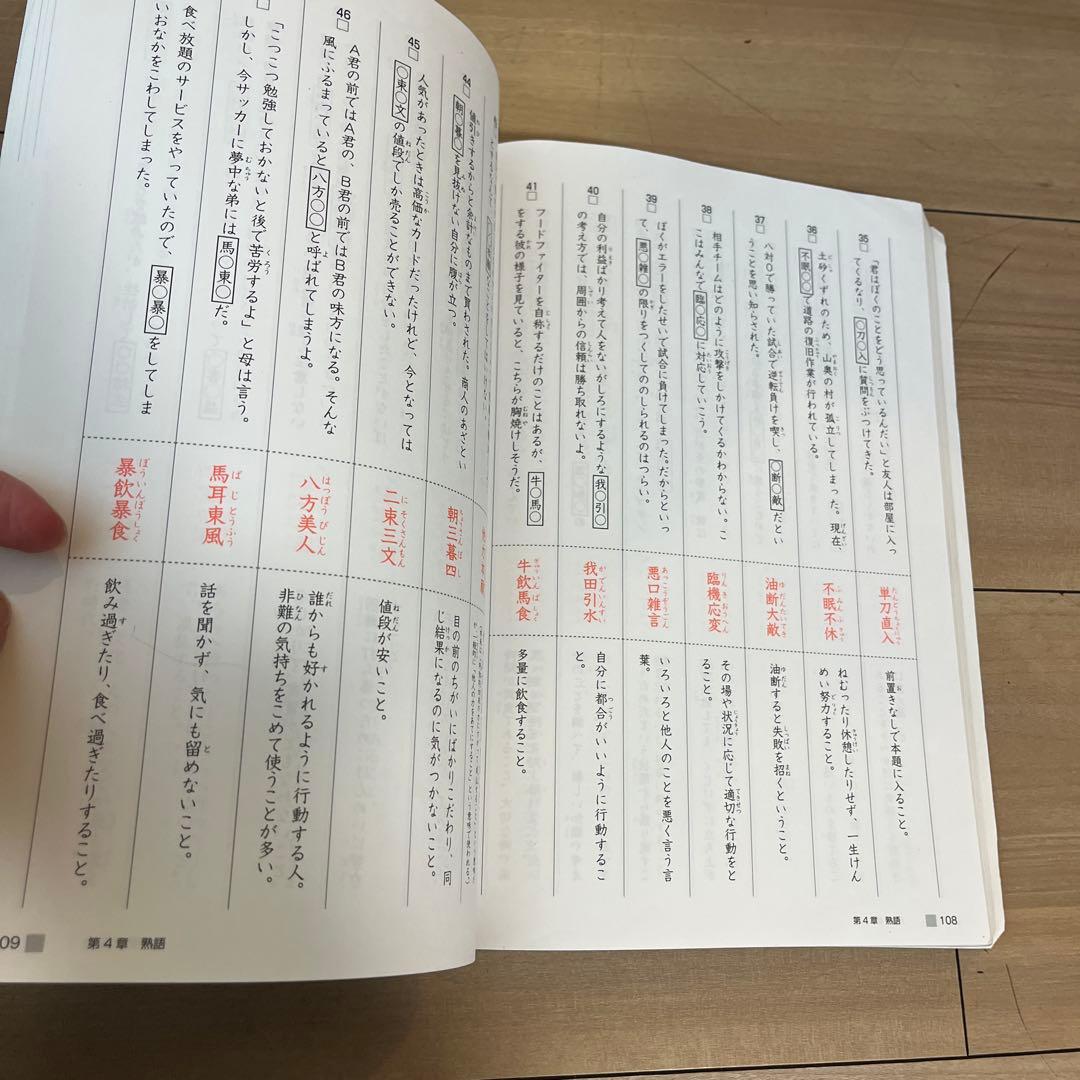 35
「君はぼくのことをどう思っているんだい」と友人は部屋に入っ
てくるなり、○刀○入に質問をぶつけてきた。
単刀直入
たんとうちょくにゅう
前置きなしで本題に入ること。
36
土砂くずれのため、山奥の村が孤立してしまった。現在、
不眠○○で道路の復旧作業が行われている。
不眠不休
ふみんふきゅう
ねむったり休憩したりせず、一生けん
めい努力すること。
37
八対0で勝っていた試合で逆転負けを喫し、○断○敵だとい
うことを思い知らされた。
油断大敵
ゆだんたいてき
油断すると失敗を招くということ。
38
相手チームはどのように攻撃をしかけてくるかわからない。こ
こはみんなで臨○応○に対応していこう。
臨機応変
りんきおうへん
その場や状況に応じて適切な行動をと
ること。
39
ぼくがエラーをしたせいで試合に負けてしまった。だからといっ
て、悪○雑○の限りをつくしてののしられるのはつらい。
悪口雑言
あっこうぞうごん
いろいろと他人のことを悪く言う言
葉。
40
自分の利益ばかり考えて人をないがしろにするような我○引○
の考え方では、周囲からの信頼は勝ち取れないよ。
我田引水
がでんいんすい
自分に都合がいいように行動するこ
と。
41
フードファイターを自称するだけのことはあるが、牛○馬○
をする彼の様子を見ていると、こちらが胸焼けしそうだ。
牛飲馬食
ぎゅういんばしょく
多量に飲食すること。
第4章 熟語 108
44
値引きするからと余計なものまで買わされた。商人のあざとい
朝○暮○を見抜けない自分に腹が立つ。
朝三暮四
ちょうさんぼし
目の前のちがいにばかりこだわり、同
じ結果になるのに気がつかないこと。
45
人気があったときは高価なカードだったけれど、今となっては
○束○文の値段でしか売ることができない。
二束三文
にそくさんもん
値段が安いこと。
46
A君の前ではA君の、B君の前ではB君の味方になる。そんな
風にふるまっていると八方○○と呼ばれてしまうよ。
八方美人
はっぽうびじん
誰からも好かれるように行動する人。
非難の気持ちをこめて使うことが多い。
「こつこつ勉強しておかないと後で苦労するよ」と母は言う。
しかし、今サッカーに夢中な弟には馬○東○だ。
馬耳東風
ばじとうふう
話を聞かず、気にも留めないこと。
食べ放題のサービスをやっていたので、暴○暴○をしてしま
いおなかをこわしてしまった。
暴飲暴食
ぼういんぼうしょく
飲み過ぎたり、食べ過ぎたりすること。
09 第4章 熟語